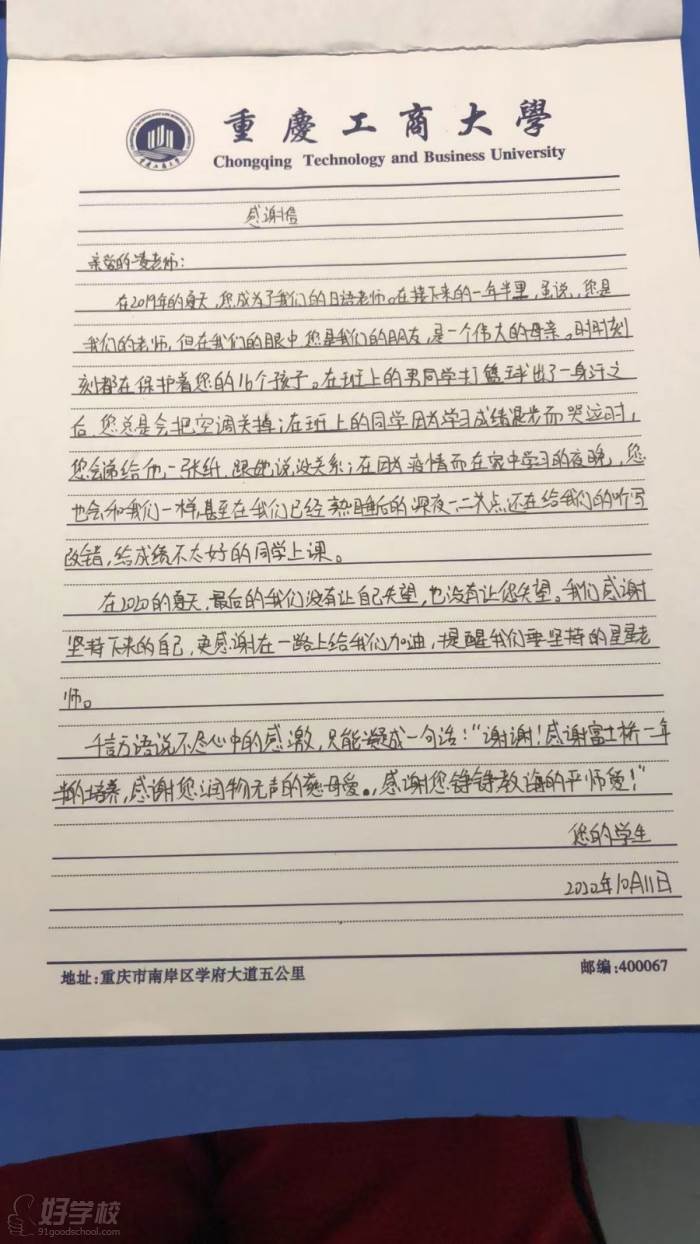 重慶工商大學
Chongqing Technology and Business University
感谢信
亲爱的凌老师:
在2019年的夏天,您成为了我们的日语老师。在接下来的一年半里,虽说,您是
我们的老师,但在我们的眼中您是我们的朋友,是一个伟大的母亲。时时刻
刻都在保护着您的16个孩子。在班上的男同学打篮球出了一身汗之
后,您总是会把空调关掉;在班上的同学因为学习成绩退步而哭泣时,
您会递给他一张纸,跟她说,没关系;在因为疫情而在家中学习的夜晚,您
也会和我们一样,甚至在我们已经熟睡后的深夜一二点还在给我们的听写
改错,给成绩不太好的同学上课。
在2020的夏天,最后的我们没有让自己失望,也没有让您失望。我们感谢
坚持下来的自己,更感谢在一路上给我们加油,提醒我们要坚持的星星老
师。
千言万语说不尽心中的感激,只能凝成一句话:“谢谢!感谢富士桥一年
半的培养,感谢您润物无声的慈母爱。,感谢您铮铮教诲的严师爱!”
您的学生
2020年10月11日
地址:重庆市南岸区学府大道五公里
邮编:400067
好学校
91goodschool.com